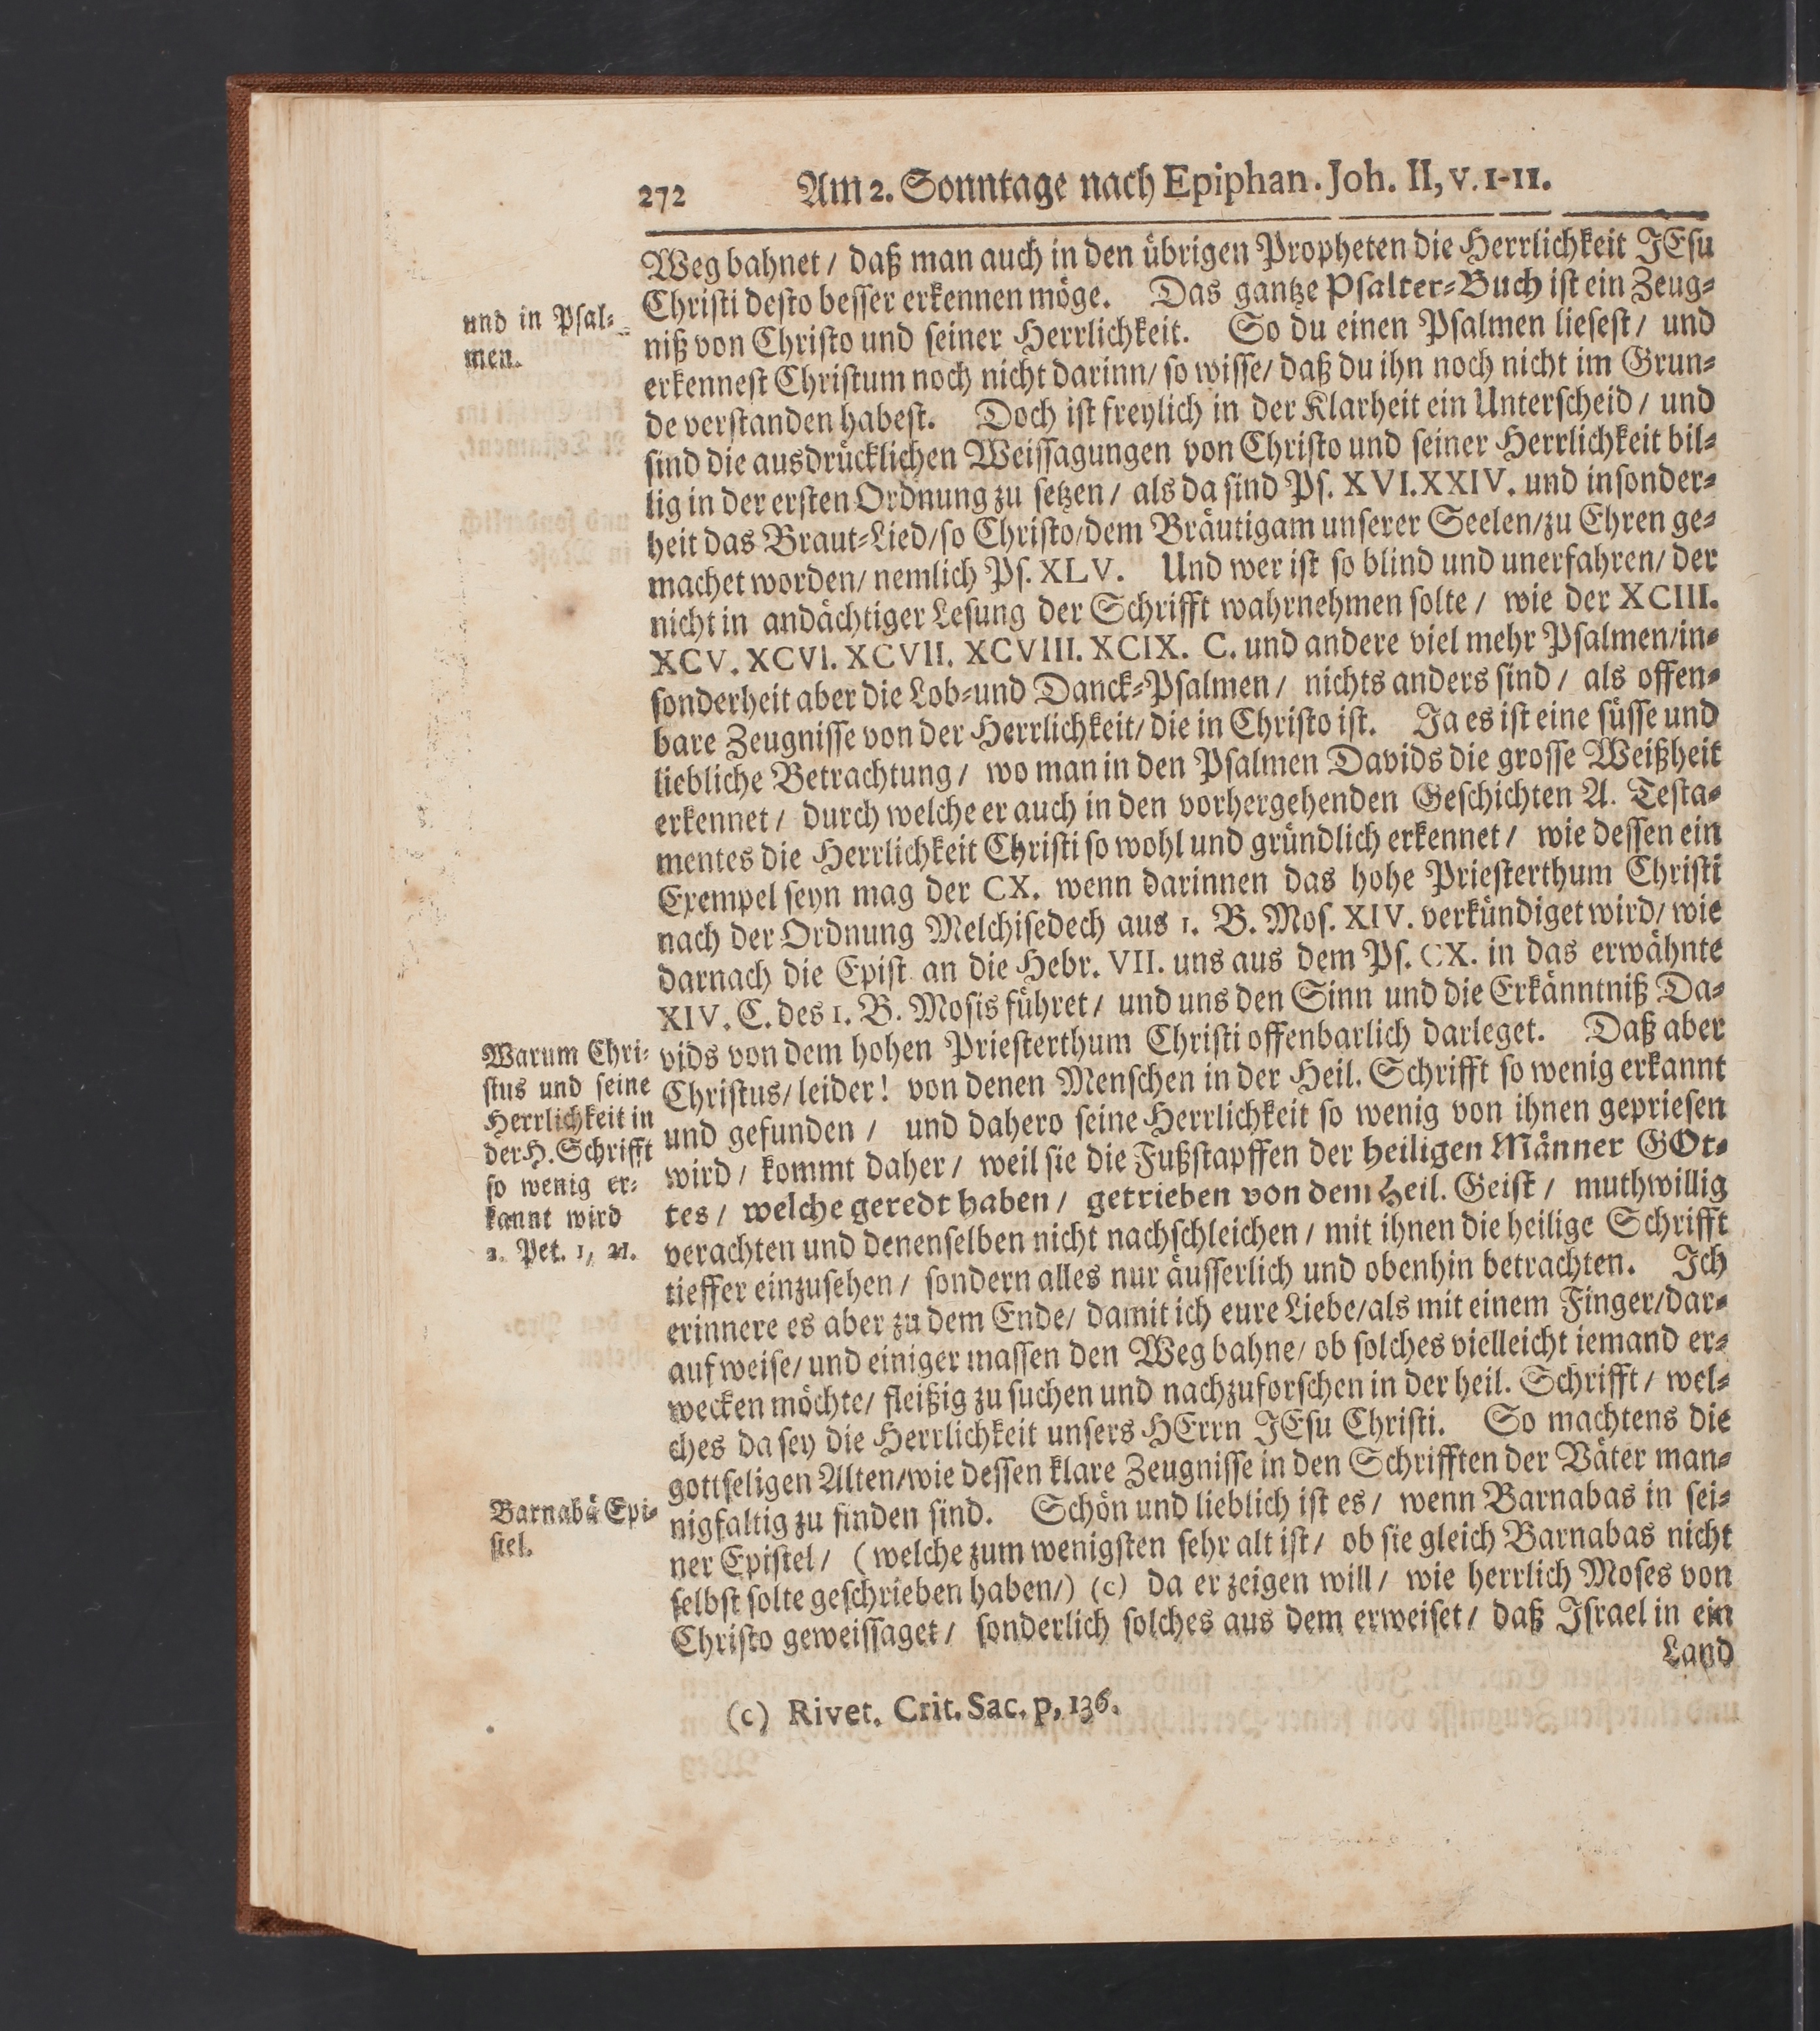 272 Am 2. Sonntage nach Epiphan. Joh. II, v. 1-11.
Weg bahnet / daß man auch in den übrigen Propheten die Herrlichkeit JEsu
Christi desto besser erkennen möge. Das gantze Psalter-Buch ist ein Zeug-
niß von Christo und seiner Herrlichkeit. So du einen Psalmen liesest / und
erkennest Christum noch nicht darinn / so wisse / daß du ihn noch nicht im Grun-
de verstanden habest. Doch ist freylich in der Klarheit ein Unterscheid / und
sind die ausdrücklichen Weissagungen von Christo und seiner Herrlichkeit bil-
lig in der ersten Ordnung zu setzen / als da sind Ps. XVI. XXIV. und insonder-
heit das Braut-Lied / so Christo / dem Bräutigam unserer Seelen / zu Ehren ge-
machet worden / nemlich Ps. XLV. Und wer ist so blind und unerfahren / der
nicht in andächtiger Lesung der Schrifft wahrnehmen solte / wie der XCIII.
XCV. XCVI. XCVII. XCVIII. XCIX. C. und andere viel mehr Psalmen / in-
sonderheit aber die Lob-und Danck-Psalmen / nichts anders sind / als offen-
bare Zeugnisse von der Herrlichkeit / die in Christo ist. Ja es ist eine süsse und
liebliche Betrachtung / wo man in den Psalmen Davids die grosse Weißheit
erkennet / durch welche er auch in den vorhergehenden Geschichten A. Testa-
mentes die Herrlichkeit Christi so wohl und gründlich erkennet / wie dessen ein
Exempel seyn mag der CX. wenn darinnen das hohe Priesterthum Christi
nach der Ordnung Melchisedech aus 1. B. Mos. XIV. verkündiget wird / wie
darnach die Epist. an die Hebr. VII. uns aus dem Ps. CX. in das erwähnte
XIV. C. des 1. B. Mosis führet / und uns den Sinn und die Erkänntniß Da-
vids von dem hohen Priesterthum Christi offenbarlich darleget. Daß aber
Christus / leider! von denen Menschen in der Heil. Schrifft so wenig erkannt
und gefunden / und dahero seine Herrlichkeit so wenig von ihnen gepriesen
wird / kommt daher / weil sie die Fußstapffen der heiligen Männer GOt-
tes / welche geredt haben / getrieben von dem Heil. Geist / muthwillig
verachten und denenselben nicht nachschleichen / mit ihnen die heilige Schrifft
tieffer einzusehen / sondern alles nur äusserlich und obenhin betrachten. Ich
erinnere es aber zu dem Ende / damit ich eure Liebe / als mit einem Finger / dar-
auf weise / und einiger massen den Weg bahne / ob solches vielleicht iemand er-
wecken möchte / fleißig zu suchen und nachzuforschen in der heil. Schrifft / wel-
ches da sey die Herrlichkeit unsers HErrn JEsu Christi. So machtens die
gottseligen Alten / wie dessen klare Zeugnisse in den Schrifften der Väter man-
nigfaltig zu finden sind. Schön und lieblich ist es / wenn Barnabas in sei-
ner Epistel / (welche zum wenigsten sehr alt ist / ob sie gleich Barnabas nicht
selbst solte geschrieben haben /) (c) da er zeigen will / wie herrlich Moses von
Christo geweissaget / sonderlich solches aus dem erweiset / daß Israel in ein
Land
(c) Rivet. Crit. Sac. p. 136.
und in Psal-
men.
Warum Chri-
stus und seine
Herrlichkeit in
der H. Schrifft
so wenig er-
kannt wird
2. Pet. 1, 21.
Barnabä Epi-
stel.